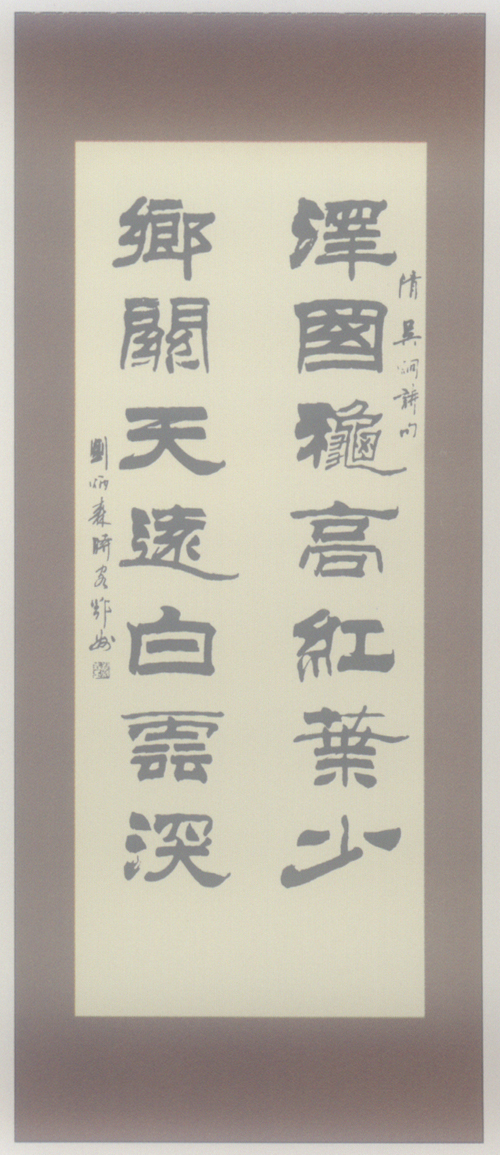 澤國穐高紅葉少
清吳泂詩句
鄉關天遠白雲深
劉炳森時客